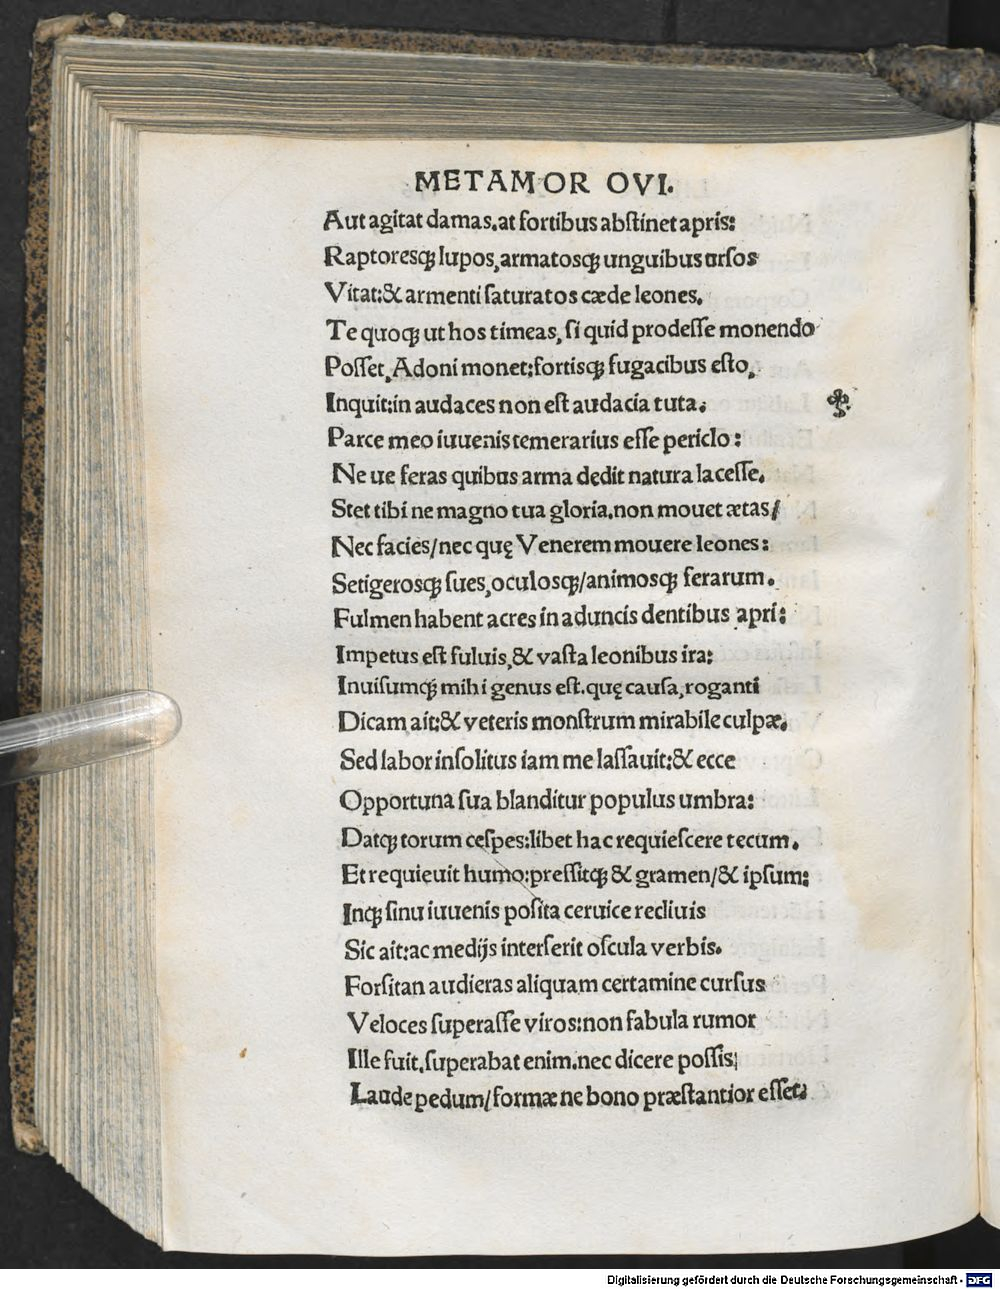 METAMOR OVI.
Aut agitat damas.at fortibus abſtinet apris:
Raptoresqꝫ lupos,armatosqꝫ unguibus urſos
Vitat:& armenti ſaturatos cæde leones.
Te quoqꝫ ut hos timeas, ſi quid prodeſſe monendo
Poſſet,Adoni monet:fortisqꝫ fugacibus eſto,
Inquit:in audaces non eſt audacia tuta.
Parce meo iuuenis temerarius eſſe periclo:
Ne ue feras quibus arma dedit natura laceſſe.
Stet tibi ne magno tua gloria.non mouet ætas/
Nec facies/nec quę Venerem mouere leones:
Setigerosqꝫ ſues,oculosqꝫ/animosqꝫ ferarum.
Fulmen habent acres in aduncis dentibus apri:
Impetus eſt fuluis,& vaſta leonibus ira:
Inuiſumqꝫ mihi genus eſt.quę cauſa,roganti
Dicam,ait:& veteris monſtrum mirabile culpæ.
Sed labor inſolitus iam me laſſauit:& ecce
Opportuna ſua blanditur populus umbra:
Datqꝫ torum ceſpes:libet hac requieſcere tecum.
Et requieuit humo:preſſitqꝫ & gramen/& ipſum:
Inqꝫ ſinu iuuenis poſita ceruice recliuis
Sic ait:ac medijs interſerit oſcula verbis.
Forſitan audieras aliquam certamine curſus
Veloces ſuperaſſe viros:non fabula rumor
Ille fuit.ſuperabat enim.nec dicere poſſis;
Laude pedum/formæ ne bono præſtantior eſſet.
Digitalisierung gefördert durch die Deutsche Forschungsgemeinschaft - DFG